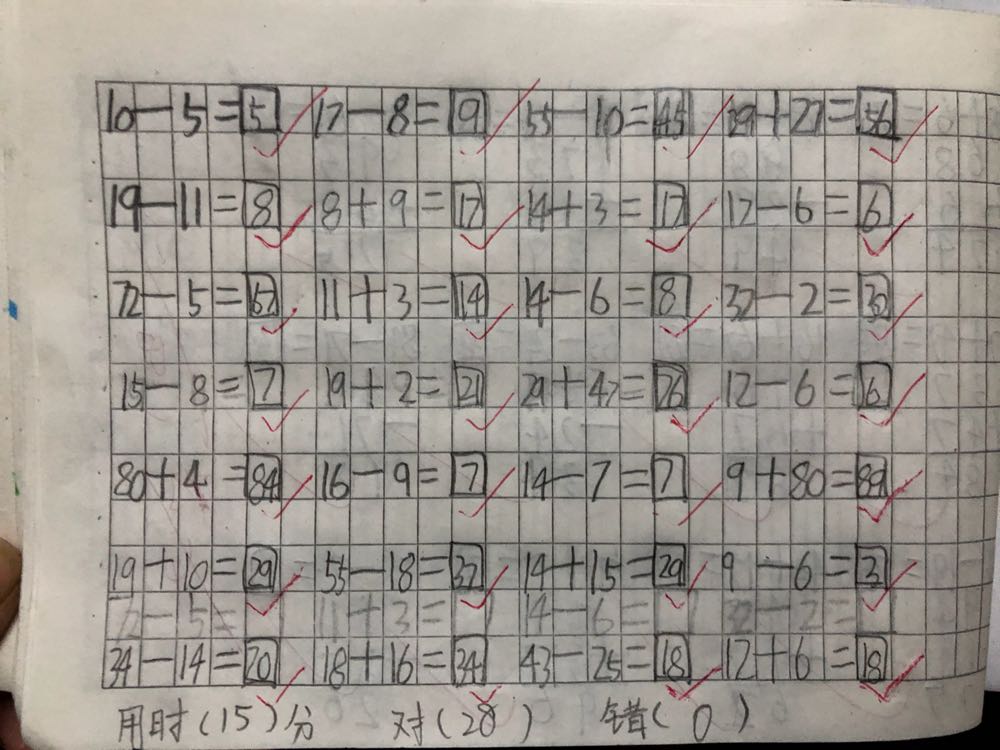 10-5=5 17-8=9 55-10=45 29+27=56
19-11=8 8+9=17 14+3=17 12-6=6
72-5=67 11+3=14 14-6=8 32-2=30
15-8=7 19+2=21 29+47=76 12-6=6
80+4=84 16-9=7 14-7=7 9+80=89
19+10=29 55-18=37 14+15=29 9-6=3
72-5= 11+3= 14-6= 32-2=
34-14=20 18+16=34 43-25=18 12+6=18
用时(15)分 对(28) 错(0)